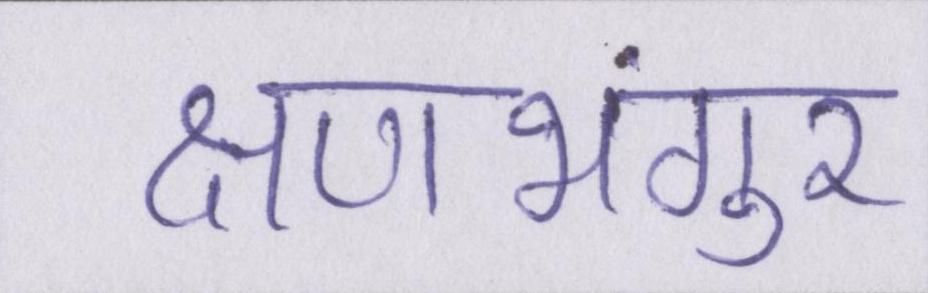 क्षणभंगुर